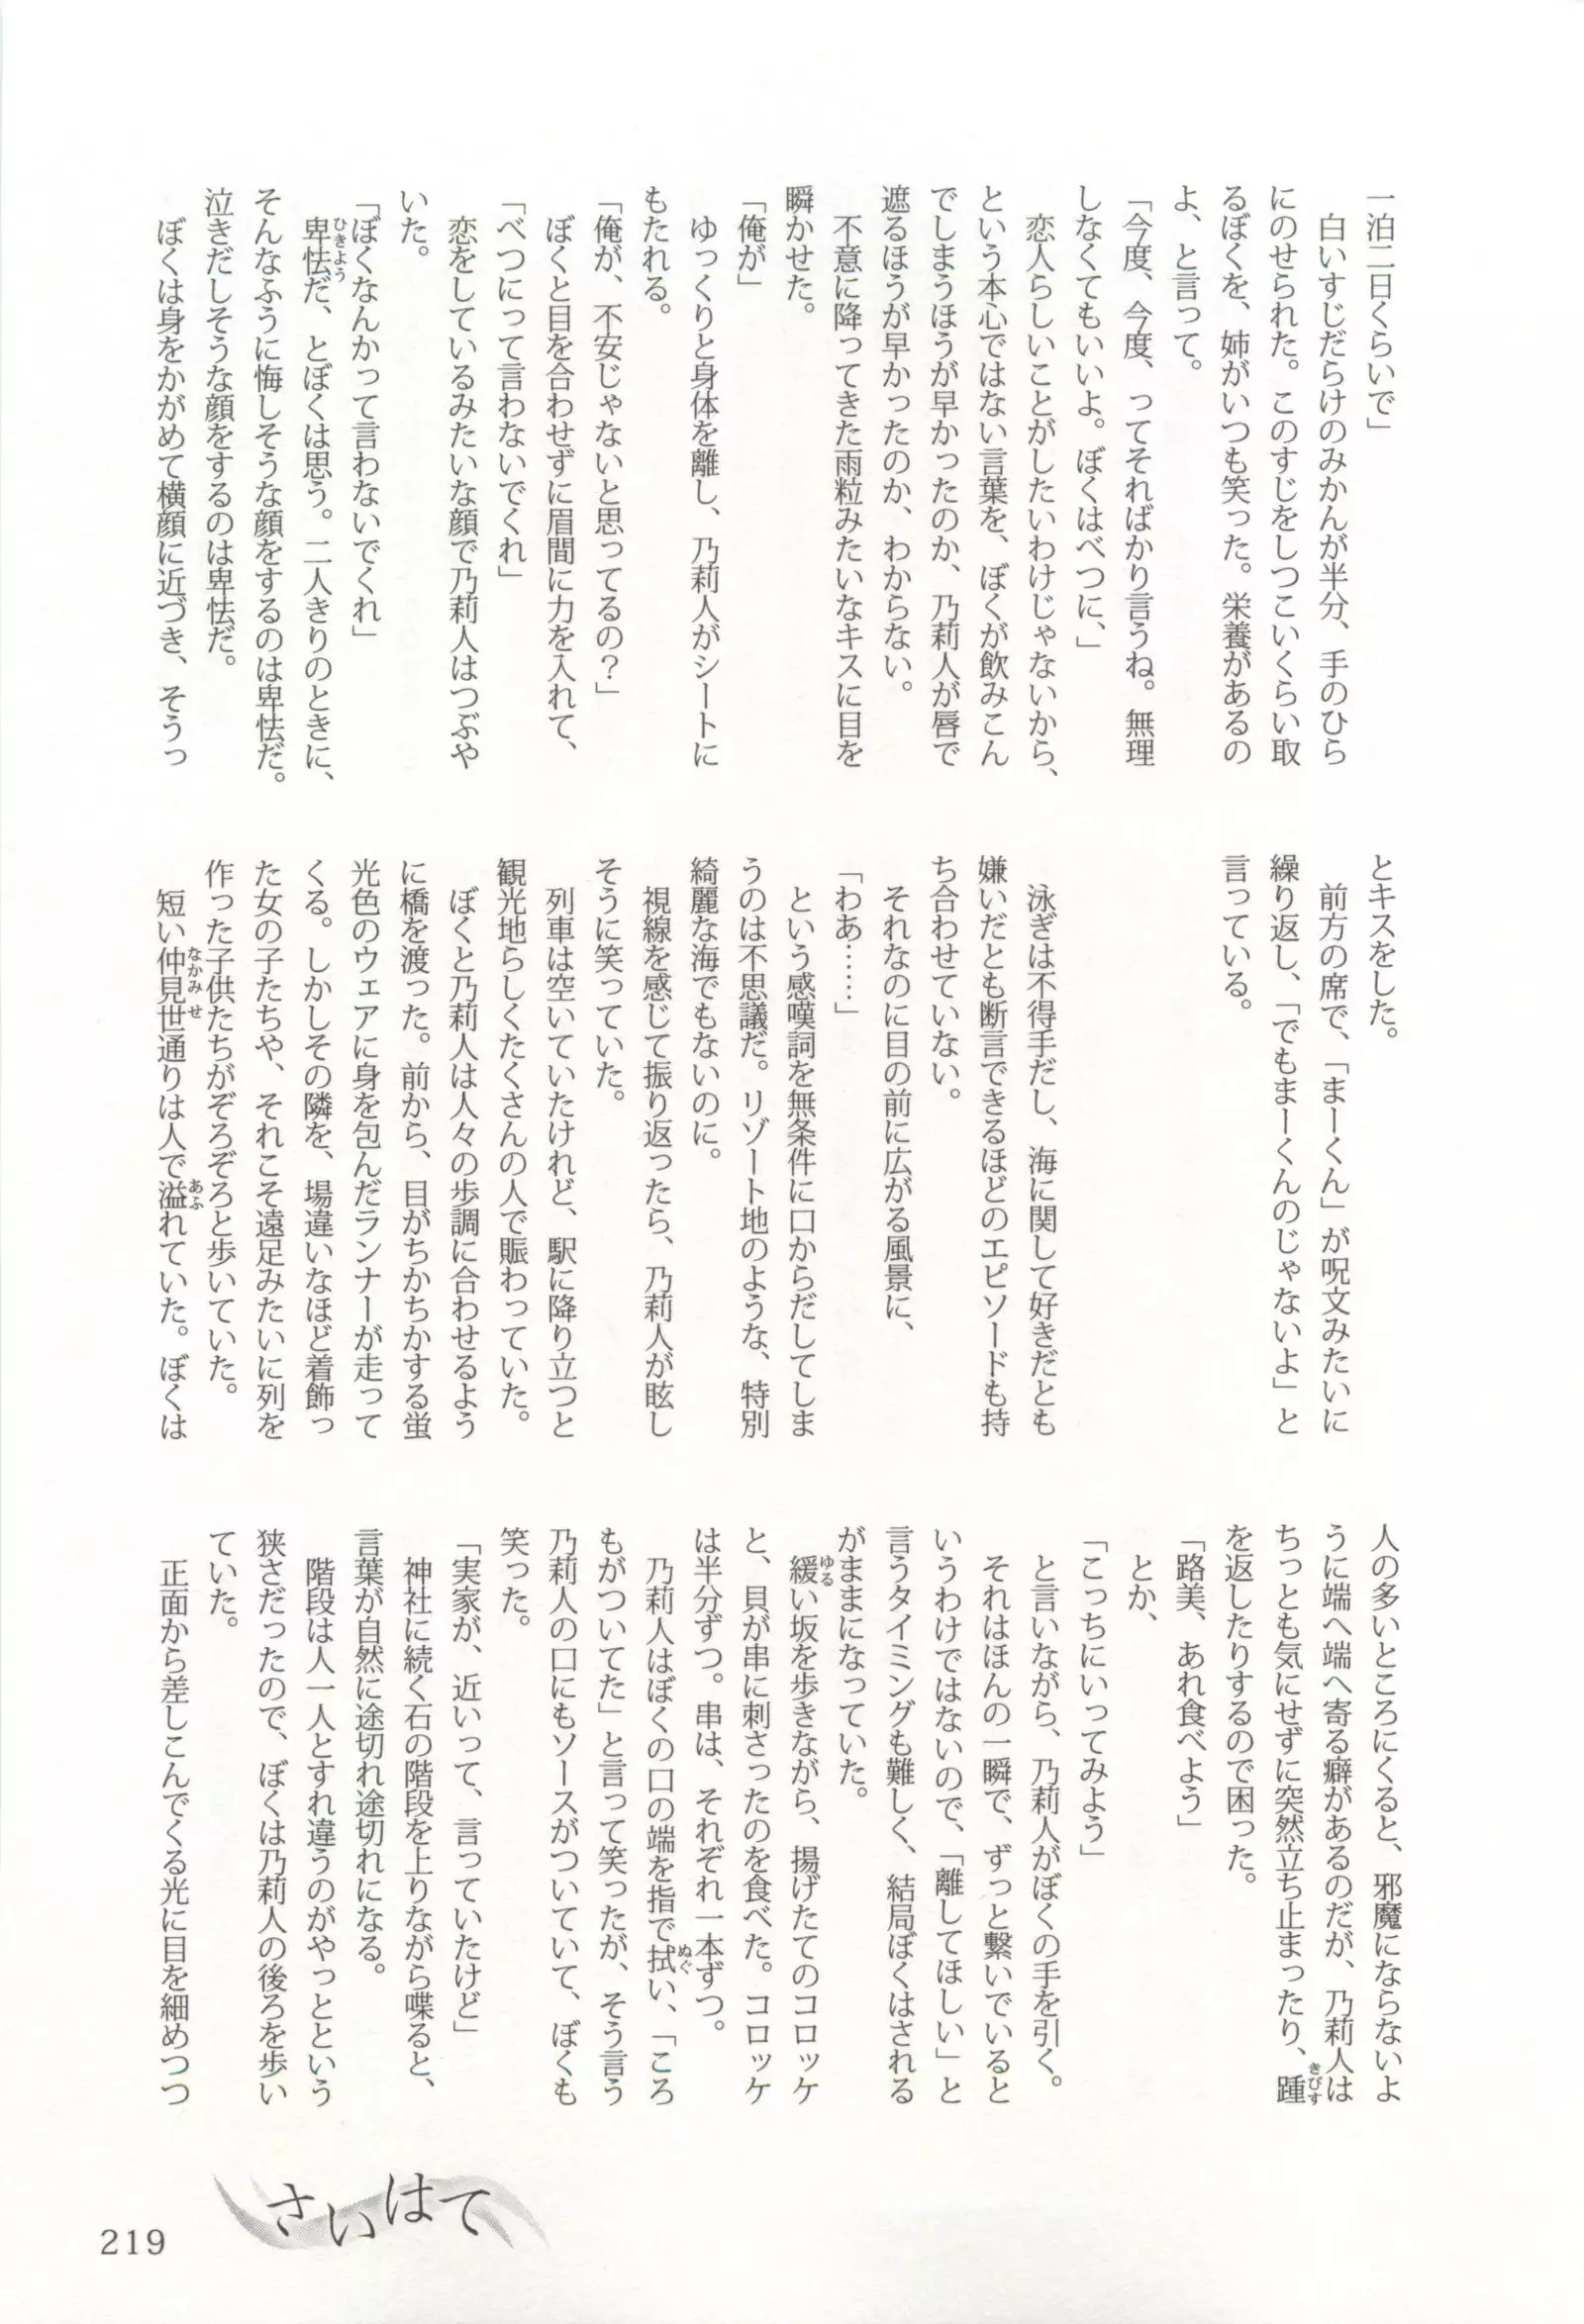 一泊二日くらいで」
白いすじだらけのみかんが半分、手のひら
にのせられた。このすじをしつこいくらい取
るぼくを、姉がいつも笑った。栄養があるの
よ、と言って。
「今度、今度、ってそればかり言うね。無理
しなくてもいいよ。ぼくはべつに、」
恋人らしいことがしたいわけじゃないから、
という本心ではない言葉を、ぼくが飲みこん
でしまうほうが早かったのか、乃莉人が唇で
遮るほうが早かったのか、わからない。
不意に降ってきた雨粒みたいなキスに目を
瞬かせた。
「俺が」
ゆっくりと身体を離し、乃莉人がシートに
もたれる。
「俺が、不安じゃないと思ってるの？」
ぼくと目を合わせずに眉間に力を入れて、
「べつにって言わないでくれ」
恋をしているみたいな顔で乃莉人はつぶや
いた。
「ぼくなんかって言わないでくれ」
卑怯だ、とぼくは思う。二人きりのときに、
そんなふうに悔しそうな顔をするのは卑怯だ。
泣きだしそうな顔をするのは卑怯だ。
ぼくは身をかがめて横顔に近づき、そうっ
とキスをした。
前方の席で、「まーくん」が呪文みたいに
繰り返し、「でもまーくんのじゃないよ」と
言っている。
泳ぎは不得手だし、海に関して好きだとも
嫌いだとも断言できるほどのエピソードも持
ち合わせていない。
それなのに目の前に広がる風景に、
「わあ……」
という感嘆詞を無条件に口からだしてしま
うのは不思議だ。リゾート地のような、特別
綺麗な海でもないのに。
視線を感じて振り返ったら、乃莉人が眩し
そうに笑っていた。
列車は空いていたけれど、駅に降り立つと
観光地らしくたくさんの人で賑わっていた。
ぼくと乃莉人は人々の歩調に合わせるよう
に橋を渡った。前から、目がちかちかする蛍
光色のウェアに身を包んだランナーが走って
くる。しかしその隣を、場違いなほど着飾っ
た女の子たちや、それこそ遠足みたいに列を
作った子供たちがぞろぞろと歩いていた。
短い仲見世通りは人で溢れていた。ぼくは
人の多いところにくると、邪魔にならないよ
うに端へ端へ寄る癖があるのだが、乃莉人は
ちっとも気にせずに突然立ち止まったり、踵
を返したりするので困った。
「路美、あれ食べよう」
とか、
「こっちにいってみよう」
と言いながら、乃莉人がぼくの手を引く。
それはほんの一瞬で、ずっと繋いでいると
いうわけではないので、「離してほしい」と
言うタイミングも難しく、結局ぼくはされる
がままになっていた。
緩い坂を歩きながら、揚げたてのコロッケ
と、貝が串に刺さったのを食べた。コロッケ
は半分ずつ。串は、それぞれ一本ずつ。
乃莉人はぼくの口の端を指で拭い、「ころ
もがついてた」と言って笑ったが、そう言う
乃莉人の口にもソースがついていて、ぼくも
笑った。
「実家が、近いって、言っていたけど」
神社に続く石の階段を上りながら喋ると、
言葉が自然に途切れ途切れになる。
階段は人一人とすれ違うのがやっとという
狭さだったので、ぼくは乃莉人の後ろを歩い
ていた。
正面から差しこんでくる光に目を細めつつ
さいはて
219